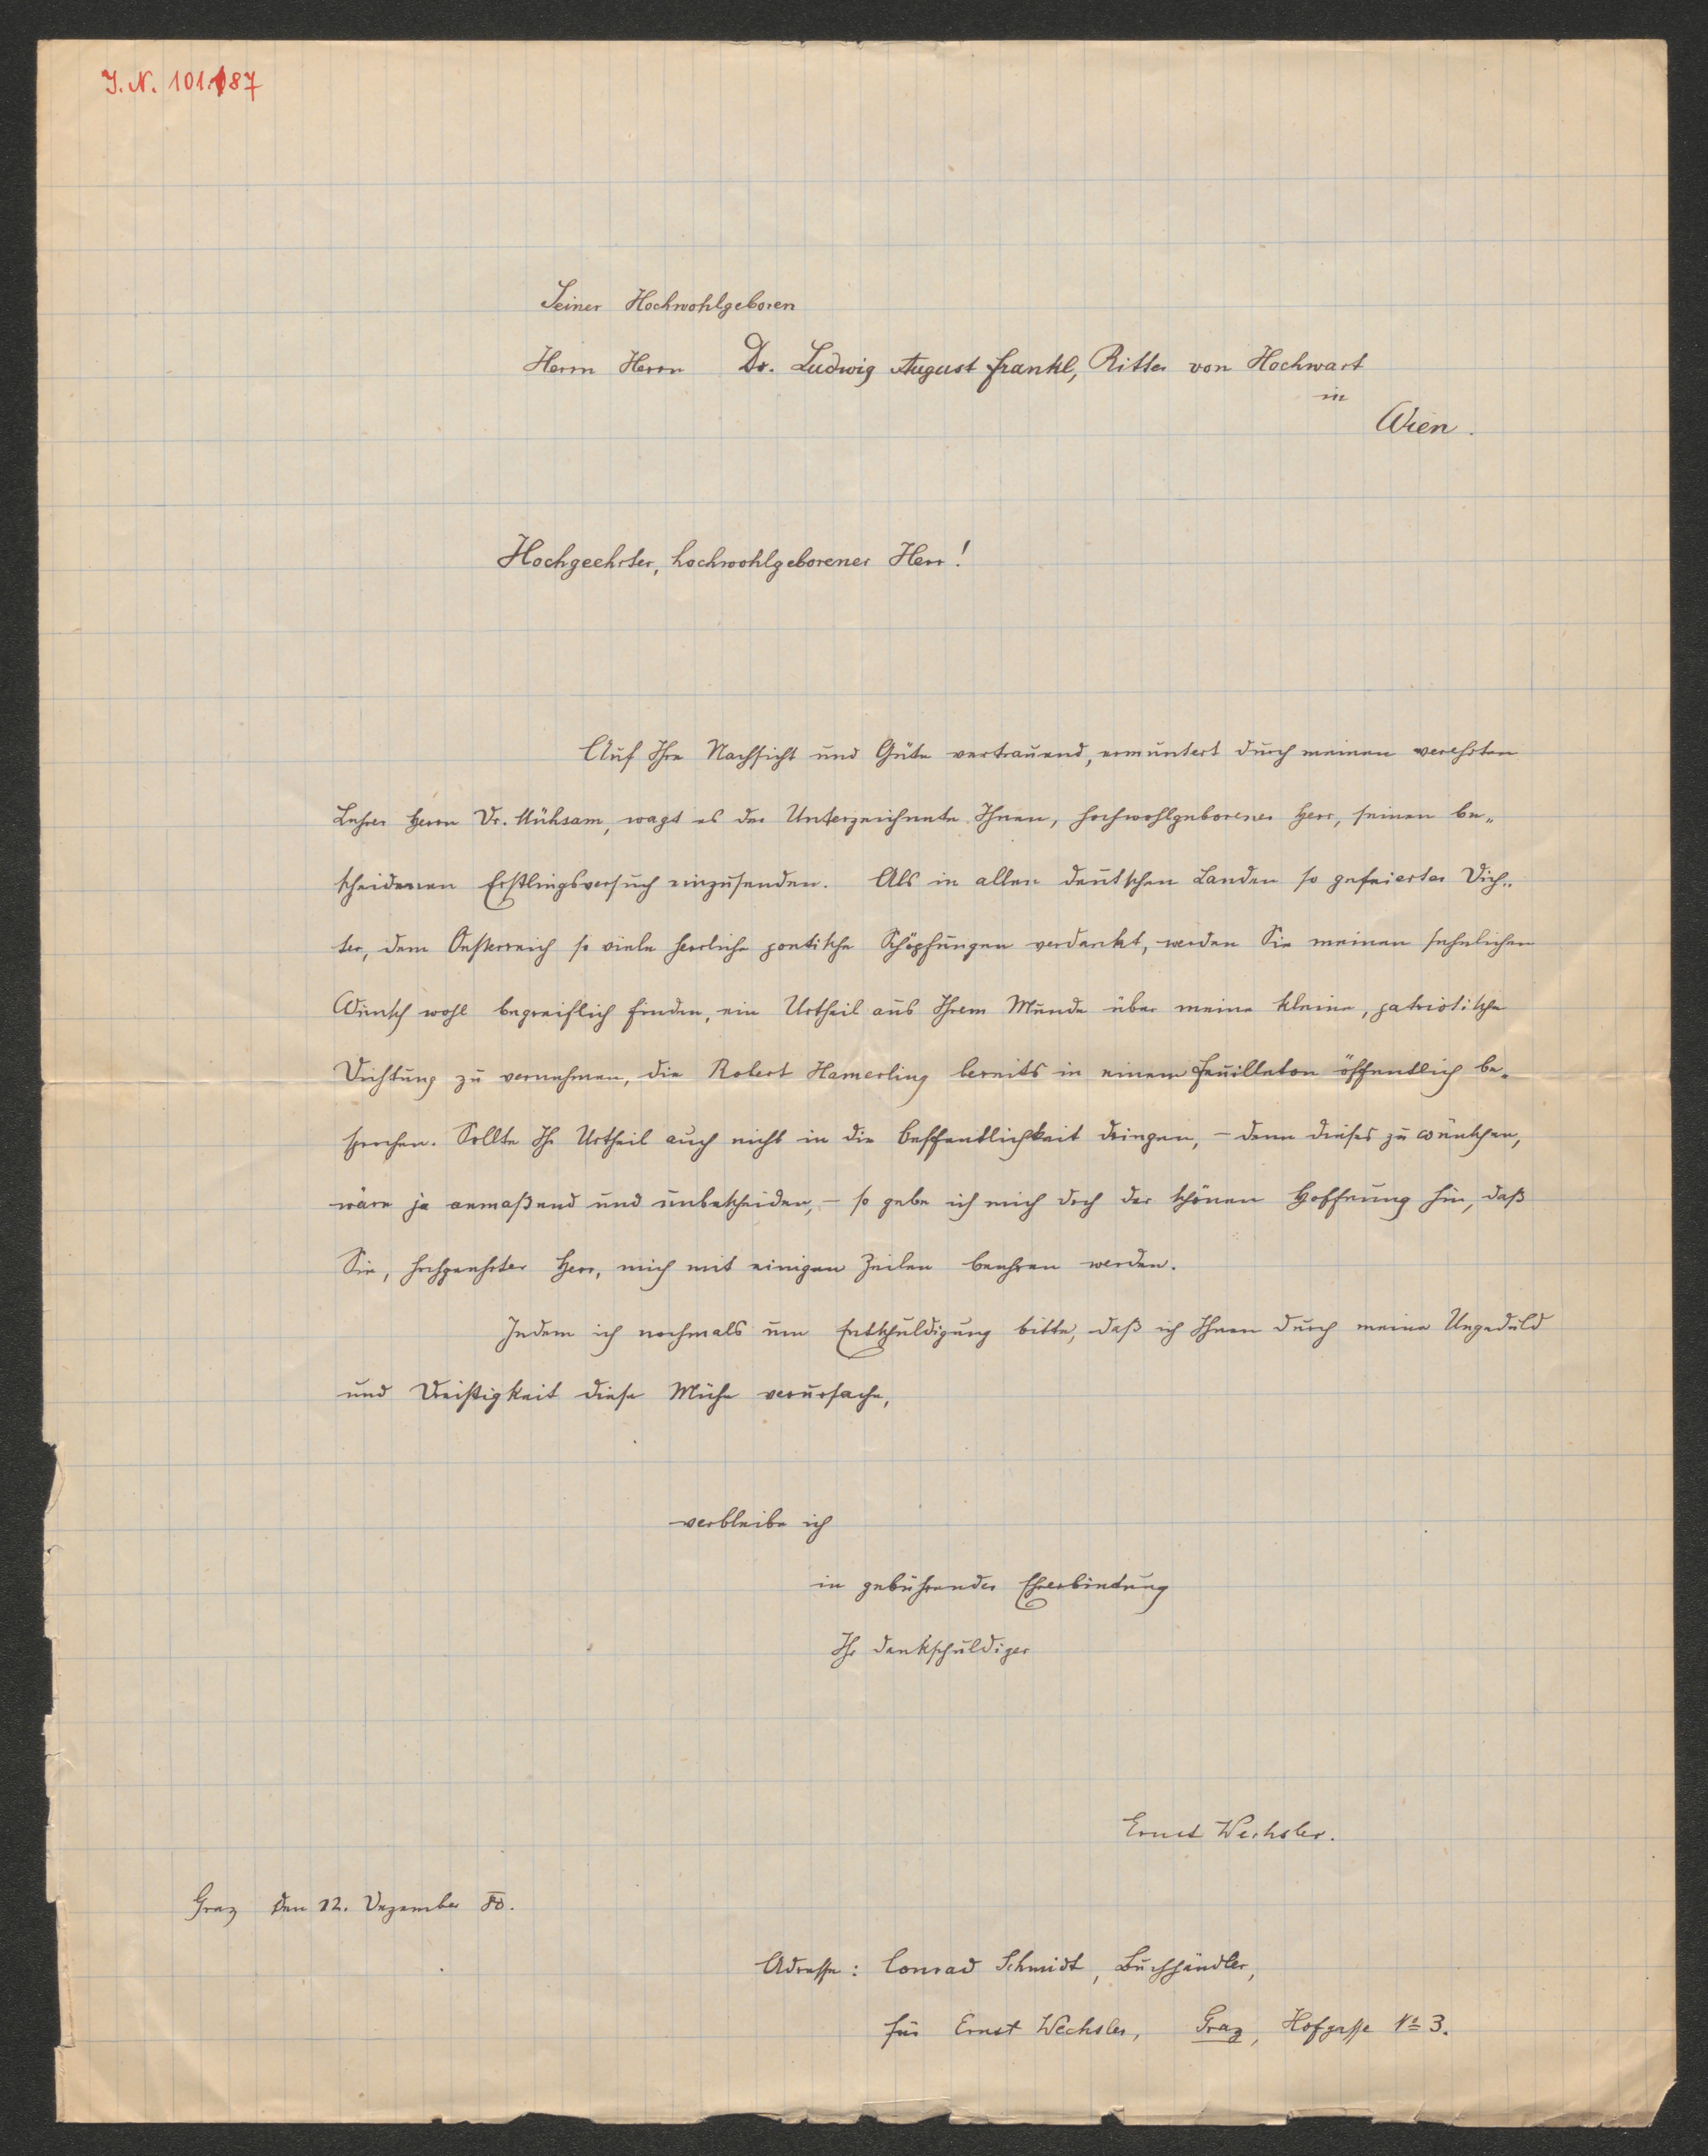 J. N. 101.187
Seiner Hochwohlgeboren
Herrn Herrn Dr. Ludwig August Frankl, Ritter von Hochwart
in
Wien.
Hochgeehrter, hochwohlgeborener Herr!
Auf Ihre Nachsicht und Güte vertrauend, ermuntert durch meinen verehrten
Lehrer Herrn Dr. Mühsam, wagt es der Unterzeichnete Ihnen, hochwohlgeborener Herr, seinen be„
scheidenen Erstlingsversuch einzusenden. Als in allen deutschen Landen so gefeierter Dich„
ter, dem Oesterreich so viele herrliche poetische Schöpfungen verdankt, werden Sie meinen sehnlichen
Wunsch wohl begreiflich finden, ein Urtheil aus Ihrem Munde über meine kleine, patriotische
Dichtung zu vernehmen, die Robert Hamerling bereits in einem Feuilleton öffentlich be„
sprochen. Sollte Ihr Urtheil auch nicht in die Oeffentlichkeit dringen, – denn dieses zu wünschen,
wäre ja anmaßend und unbescheiden, – so gebe ich mich doch der schönen Hoffnung hin, daß
Sie, hochgeehrter Herr, mich mit einigen Zeilen beehren werden.
Indem ich nochmals um Entschuldigung bitte, daß ich Ihnen durch meine Ungeduld
und Dreistigkeit diese Mühe verursache,
verbleibe ich
in gebührender Ehrerbietung
Ihr dankschuldiger
Ernst Wechsler.
Graz den 12. Dezember 80.
Adresse: Conrad Schmidt, Buchhändler,
für Ernst Wechsler, Graz, Hofgasse No 3.